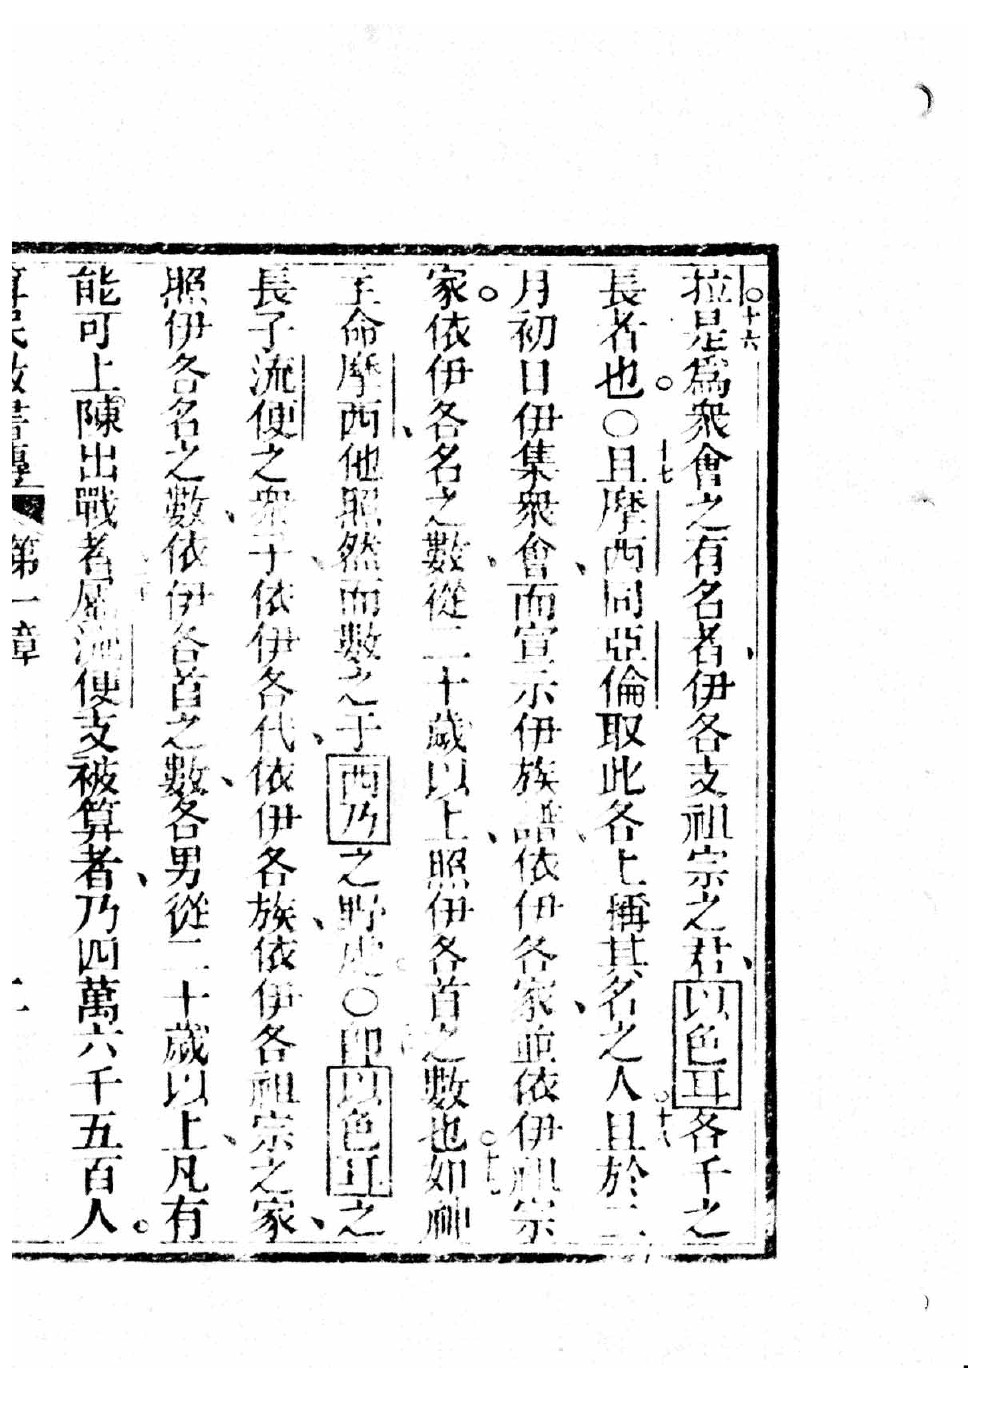 拉○十六是爲衆會之有名者、伊各支祖宗之君、以色耳各千之
長者也。○十七且摩西同亞倫取此各上稱其名之人○十八且於二
月初日伊集衆會、而宣示伊族譜、依伊各家、並依伊祖宗
家。依伊各名之數、從二十歲以上、照伊各首之數也○十九如神
主命摩西、他照然而數之于西乃之野處○即以色耳之
長子流便之衆子、依伊各代、依伊各族、依伊各祖宗之家、
照伊各名之數、依伊各首之數、各男從二十歲以上、凡有
能可上陳出戰者屬流便支被算者、乃四萬六千五百人。
算民數書傳 第一章 二